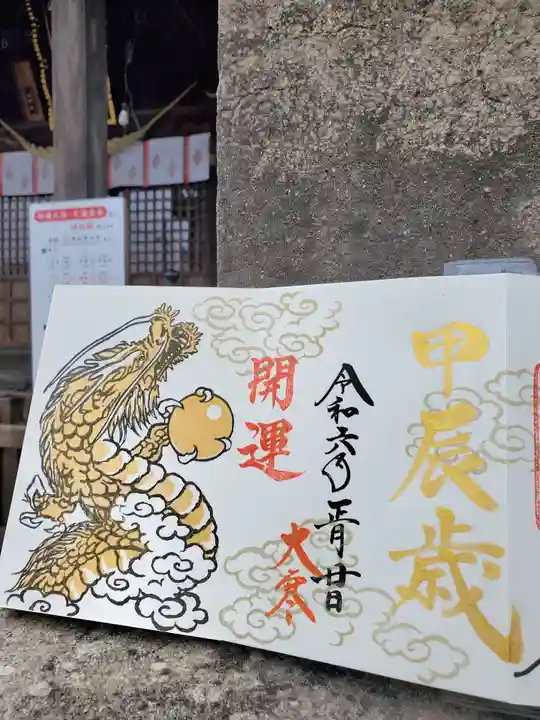 甲辰歳
令和六年正月廿日
大寒
開運